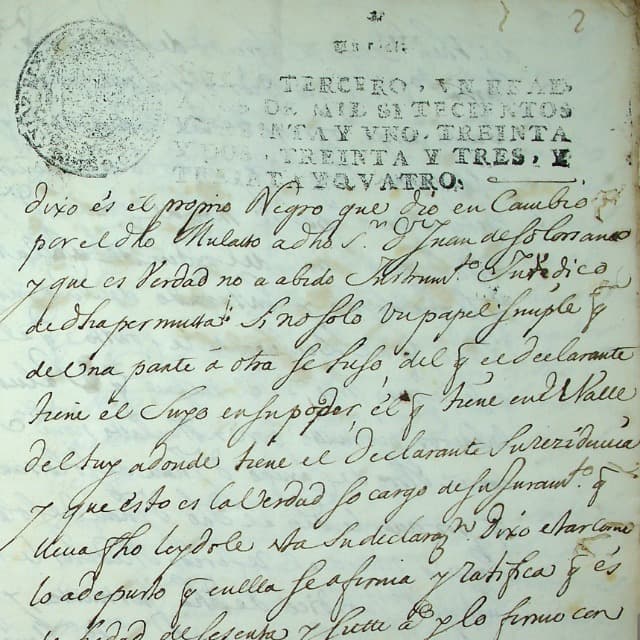 TERCERO, VN REAL,
DE MIL SETECIENTOS
Y TREINTA Y VNO. TREINTA
Y DOS, TREINTA Y TRES, Y
TREINTA Y QVATRO.
dixo és el proprio Negro que dió en Cambio
por el dho Mulatto a dho S.r D.n Juan de Solorsano
y que es Verdad no a abido Instrum.to Juridico
de dha permutta Si no solo Un papel simple q
de Una parte á otra se hiso, del q el declarante
tiene el Suyo en su poder, él q tiene en el Valle
del tuy adonde tiene el Declarante Su rezidencia
y que esto es la Verdad so cargo de su Juram.to q
lleva fho leydole esta su declaraz.n Dixo estar como
lo a depuesto q en ella se afirma y ratifica q és
de hedad de sesenta y siette a.s y lo firmo con